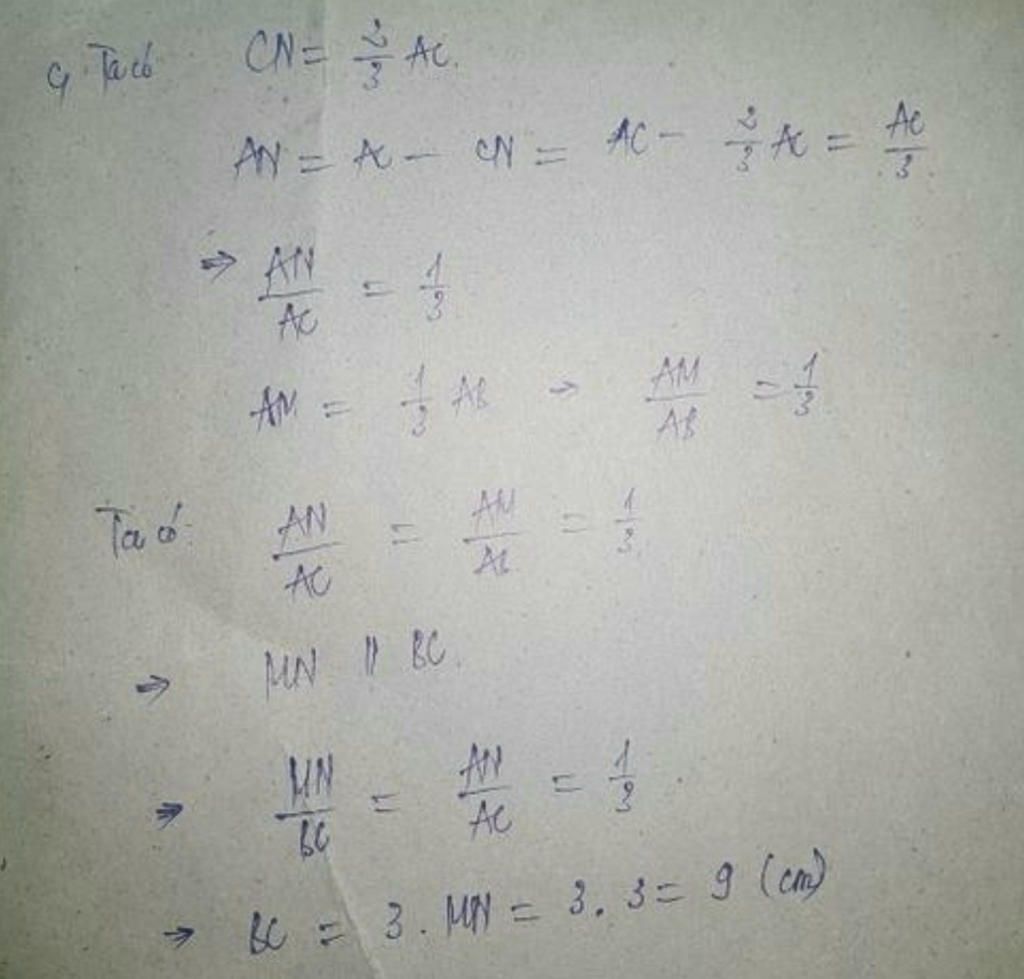 c, Ta có CN = 2/3 AC.
AN = AC - CN = AC - 2/3 AC = AC/3.
⇒ AN/AC = 1/3
AM = 1/3 AB → AM/AB = 1/3
Ta có: AN/AC = AM/AB = 1/3.
⇒ MN // BC.
⇒ MN/BC = AN/AC = 1/3.
→ BC = 3 . MN = 3 . 3 = 9 (cm)